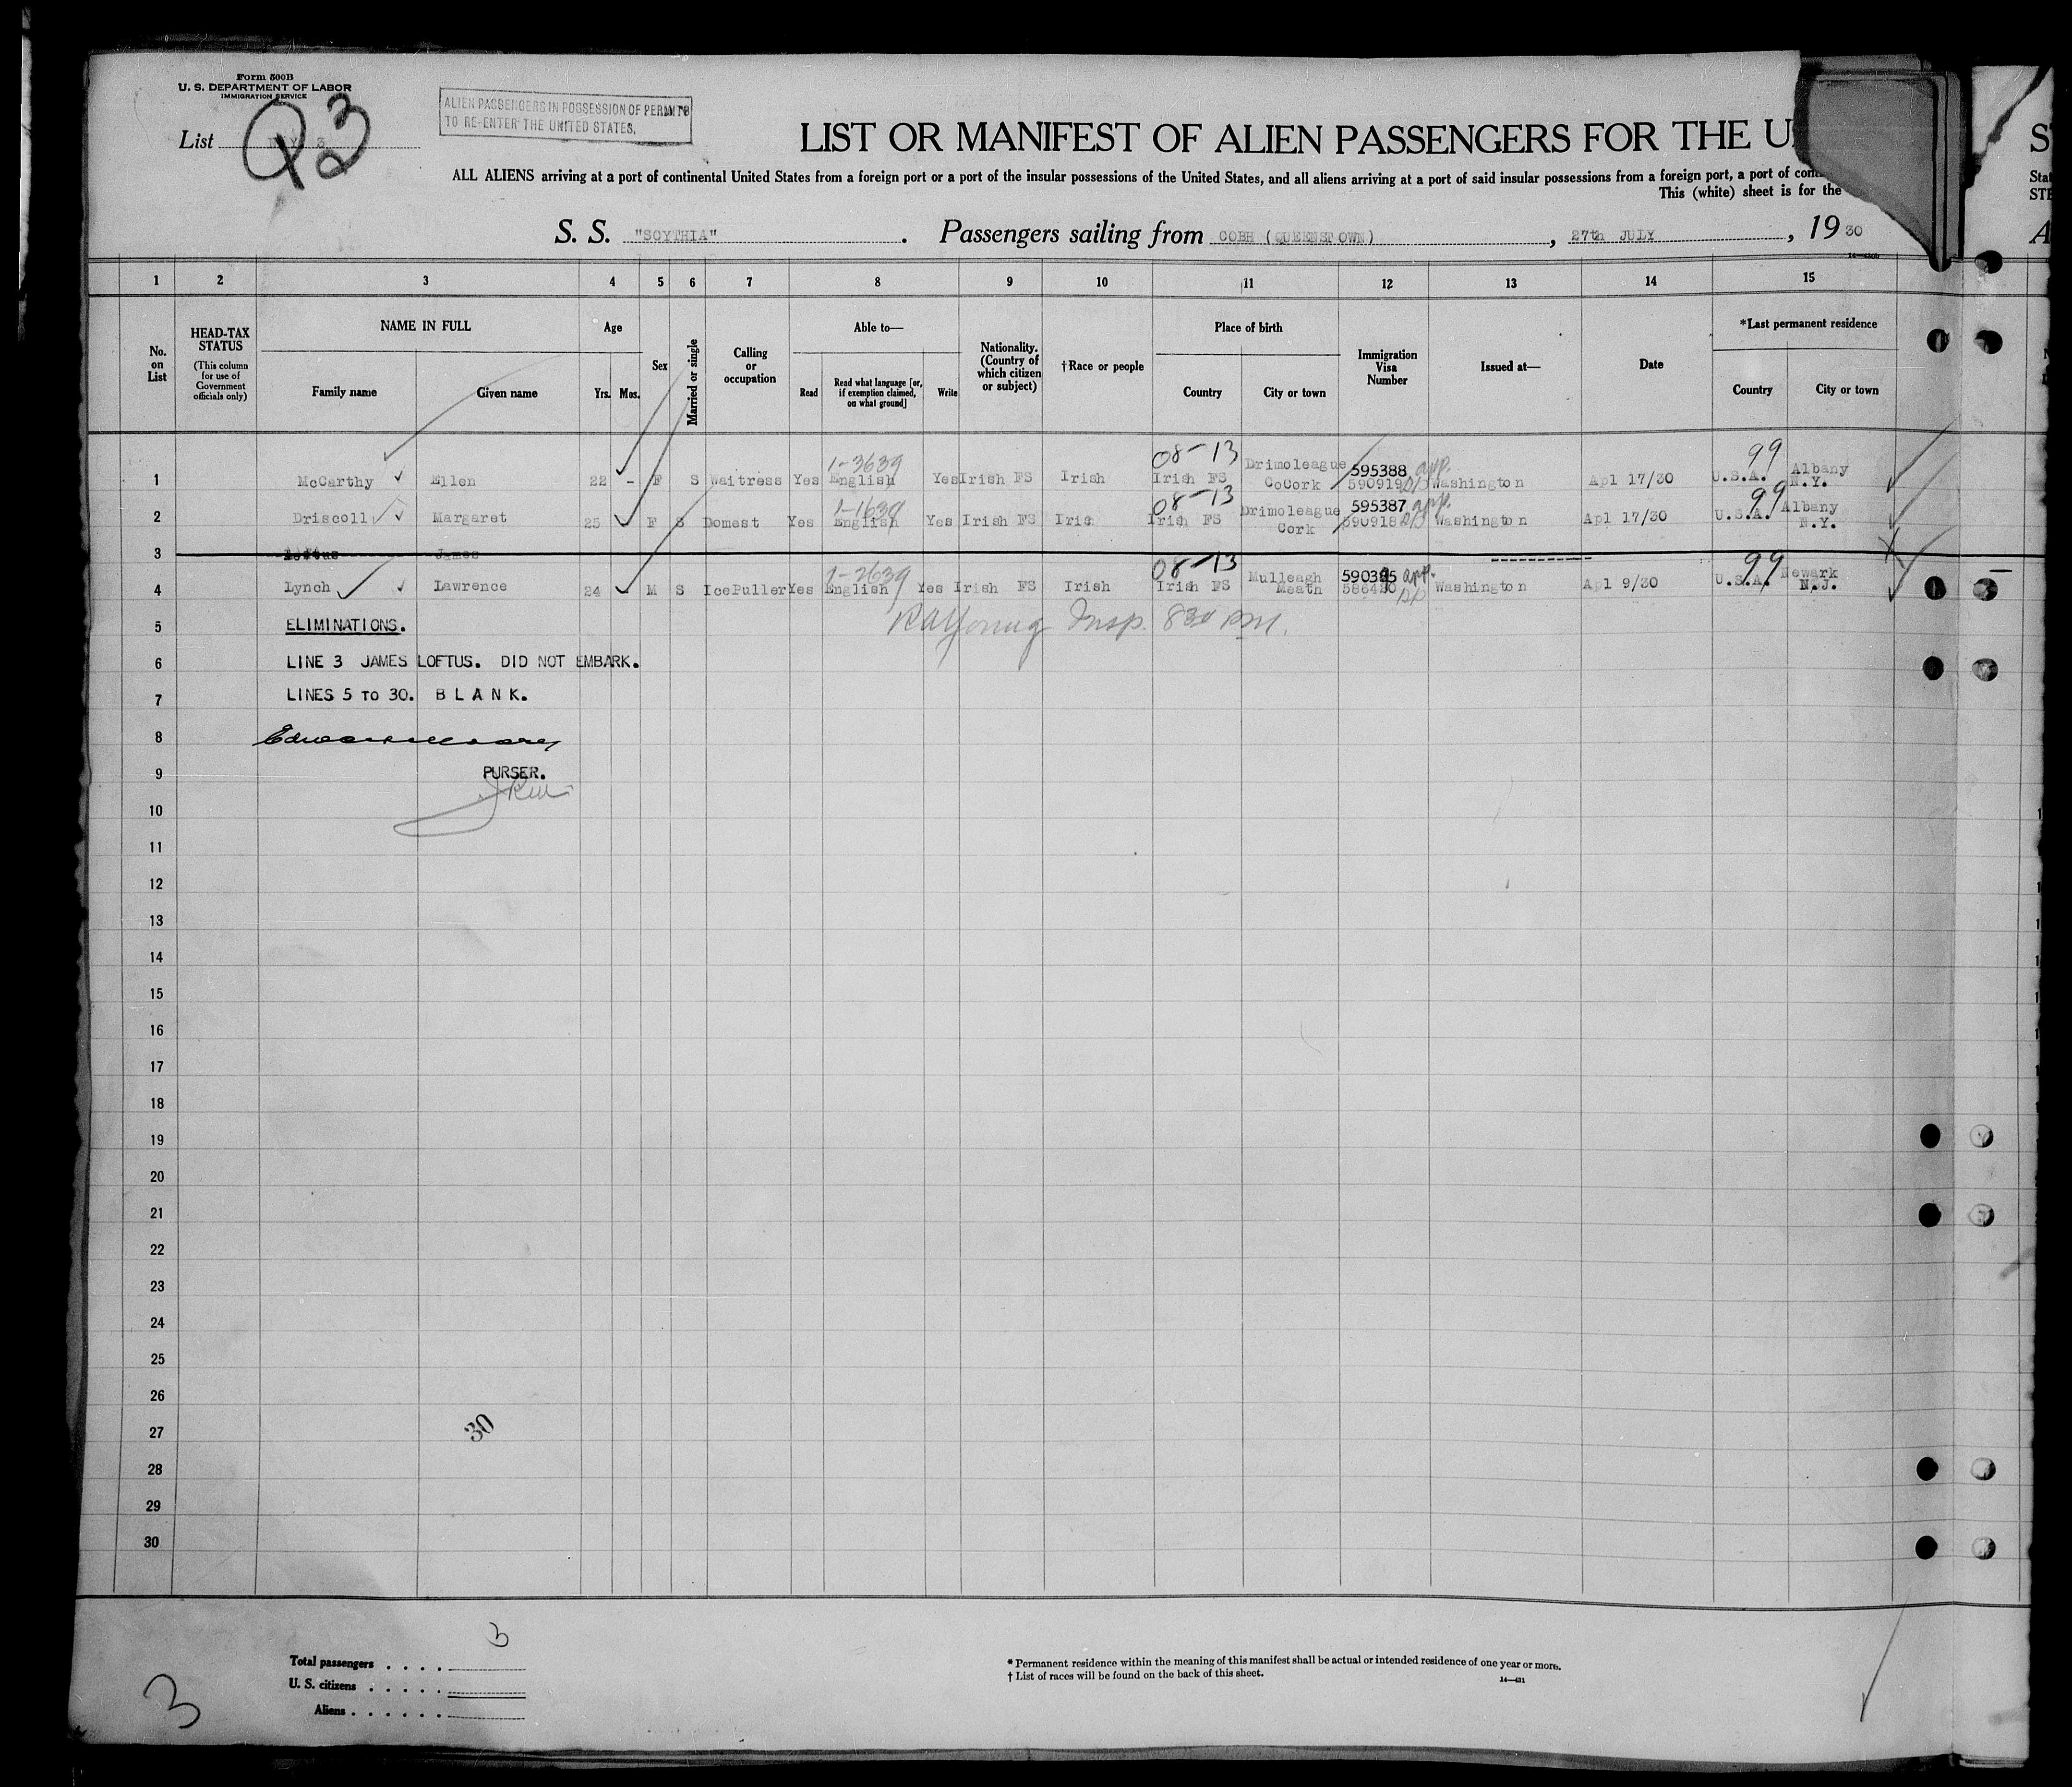 Form 500B
U. S. DEPARTMENT OF LABOR
IMMIGRATION SERVICE
List 3
23
ALIEN PASSENGERS IN POSSESSION OF PERMITS
TO RE-ENTER THE UNITED STATES.
LIST OR MANIFEST OF ALIEN PASSENGERS FOR THE U
ALL ALIENS arriving at a port of continental United States from a foreign port or a port of the insular possessions of the United States, and all aliens arriving at a port of said insular possessions from a foreign port, a port of
This (white) sheet is for the
S. S. "SCYTHIA". Passengers sailing from COBH (QUEENSTOWN), 27th JULY, 19 30
1 2 3 4 5 6 7 8 9 10 11 12 13 14 15
No. on List
HEAD-TAX STATUS (This column for use of Government officials only)
NAME IN FULL
Family name Given name
Age
Yrs. Mos.
Sex
Married or single
Calling or occupation
Able to—
Read Read what language [or, if exemption claimed, on what ground] Write
Nationality. (Country of which citizen or subject)
†Race or people
Place of birth
Country City or town
Immigration Visa Number
Issued at—
Date
*Last permanent residence
Country City or town
1-3639 08-13 Drimoleague 595388 app. 99 Albany
1 McCarthy Ellen 22 - F S Waitress Yes English Yes Irish FS Irish Irish FS CoCork 590919 Washington Apl 17/30 U.S.A. N.Y.
1-1639 08-13 Drimoleague 595387 app. 99 Albany
2 Driscoll Margaret 25 F S Domest Yes English Yes Irish FS Irish Irish FS Cork 590918 Washington Apl 17/30 U.S.A. N.Y.
3 Loftus James
1-2639 08-13 Mulleagh app. 99 Newark
4 Lynch Lawrence 24 M S IcePuller Yes English Yes Irish FS Irish Irish FS Meath Washington Apl 9/30 U.S.A. N.J.
5 ELIMINATIONS. Young Insp. 830 PM.
6 LINE 3 JAMES LOFTUS. DID NOT EMBARK.
7 LINES 5 TO 30. B L A N K.
8
9 PURSER.
10
11
12
13
14
15
16
17
18
19
20
21
22
23
24
25
26
27 30
28
29
30
3
Total passengers . . . .
U. S. citizens . . . . .
Aliens . . . . . .
3
* Permanent residence within the meaning of this manifest shall be actual or intended residence of one year or more.
† List of races will be found on the back of this sheet.